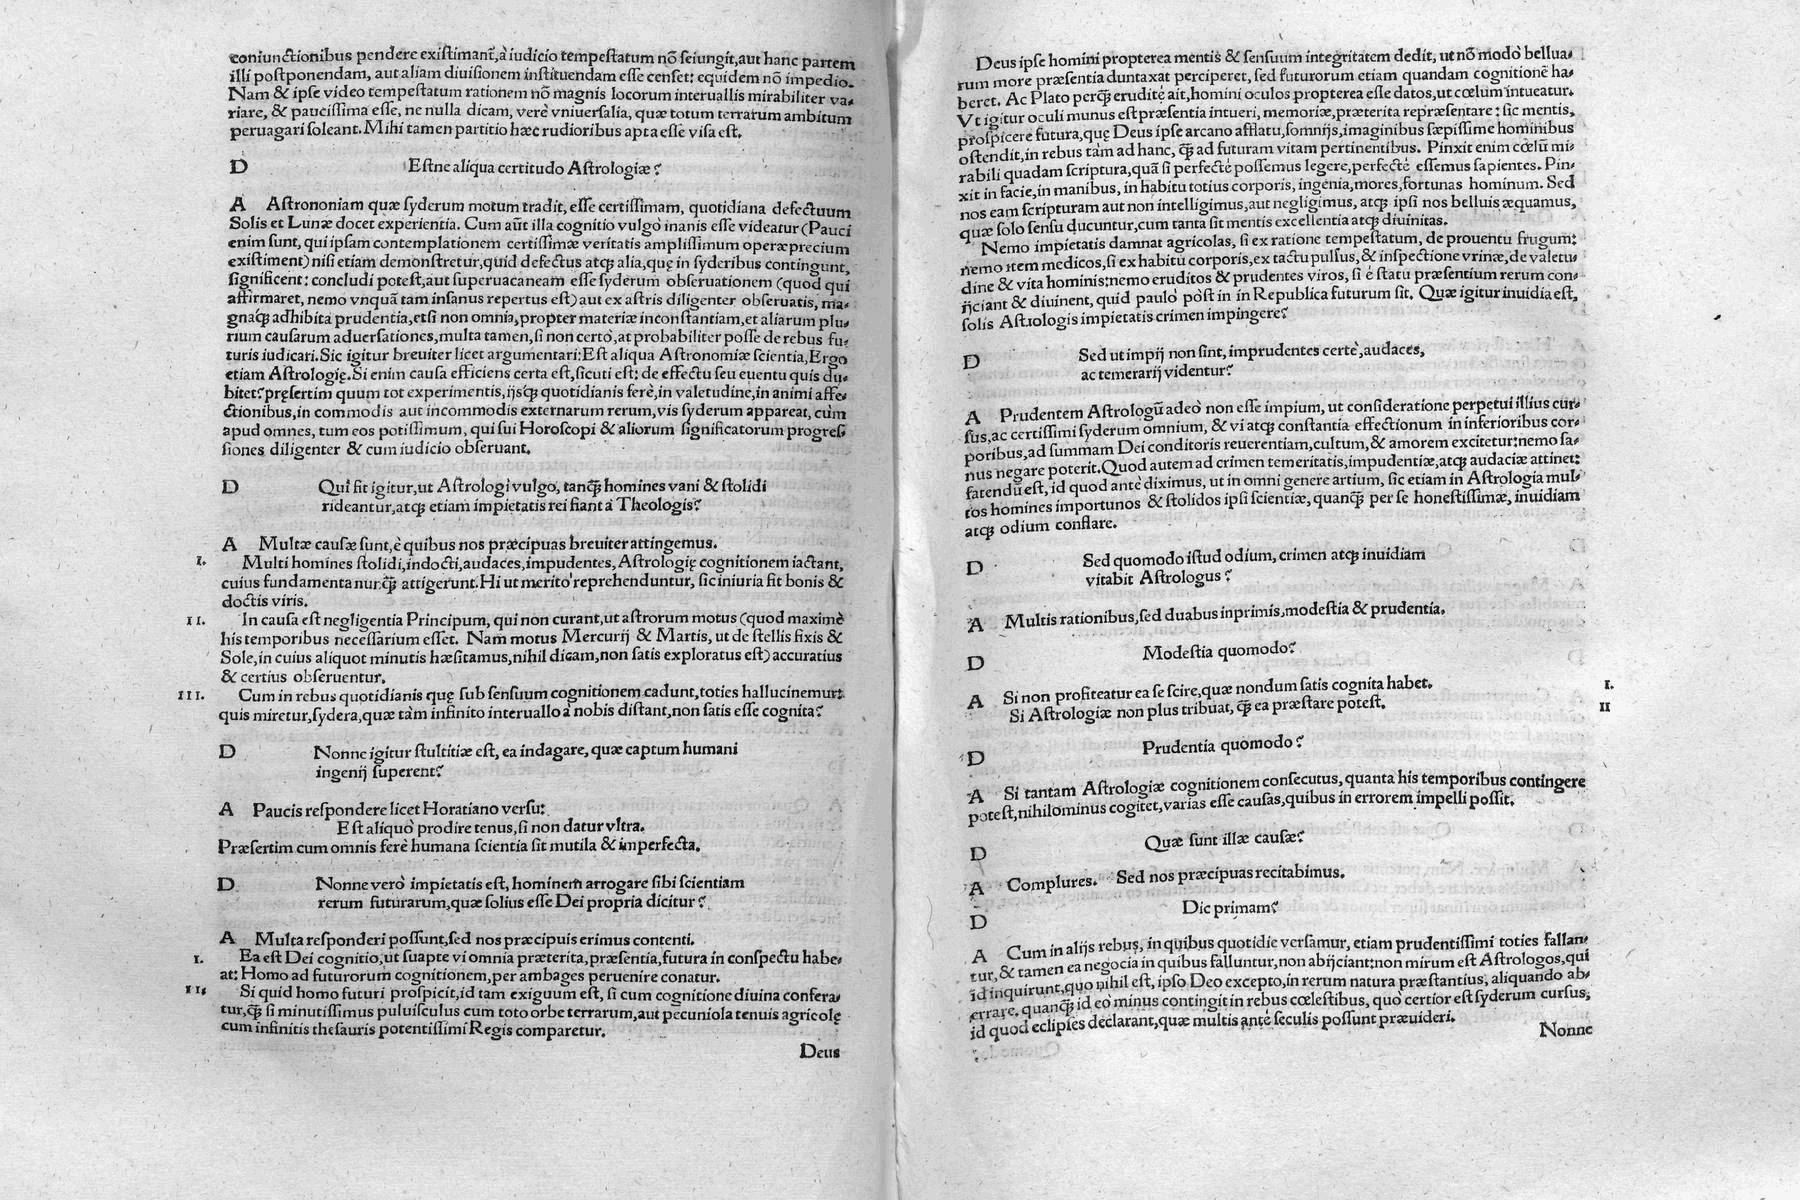 coniunctionibus pendere existimant̃, à iudicio tempestatum nõ seiungit, aut hanc partem
illi postponendam, aut aliam diuisionem instituendam esse censet: equidem nõ impedio.
Nam & ipse video tempestatum rationem nõ magnis locorum interuallis mirabiliter va-
riare, & paucissima esse, ne nulla dicam, verè vniuersalia, quæ totum terrarum ambitum
peruagari soleant. Mihi tamen partitio hæc rudioribus apta esse visa est.
D Estne aliqua certitudo Astrologiæ?
A Astrononiam quæ syderum motum tradit, esse certissimam, quotidiana defectuum
Solis et Lunæ docet experientia. Cum aũt illa cognitio vulgo inanis esse videatur (Pauci
enim sunt, qui ipsam contemplationem certissimæ veritatis amplissimum operæprecium
existiment) nisi etiam demonstretur, quid defectus atq; alia, quę in syderibus contingunt,
significent: concludi potest, aut superuacaneam esse syderum obseruationem (quod qui
affirmaret, nemo vnquã tam insanus repertus est) aut ex astris diligenter obseruatis, ma-
gnaq; adhibita prudentia, etsi non omnia, propter materiæ inconstantiam, et aliarum plu-
rium causarum aduersationes, multa tamen, si non certò, at probabiliter posse de rebus fu-
turis iudicari. Sic igitur breuiter licet argumentari: Est aliqua Astronomiæ scientia, Ergo
etiam Astrologię. Si enim causa efficiens certa est, sicuti est: de effectu seu euentu quis du-
bitet? pręsertim quum tot experimentis, ijsq; quotidianis ferè, in valetudine, in animi affe-
ctionibus, in commodis aut incommodis externarum rerum, vis syderum appareat, cùm
apud omnes, tum eos potissimum, qui sui Horoscopi & aliorum significatorum progres-
siones diligenter & cum iudicio obseruant.
D Qui fit igitur, ut Astrologi vulgo, tanq̃ homines vani & stolidi
rideantur, atq; etiam impietatis rei fiant à Theologis?
A Multæ causæ sunt, è quibus nos præcipuas breuiter attingemus.
I. Multi homines stolidi, indocti, audaces, impudentes, Astrologię cognitionem iactant,
cuius fundamenta nunq̃ attigerunt. Hi ut meritò reprehenduntur, sic iniuria fit bonis &
doctis viris.
II. In causa est negligentia Principum, qui non curant, ut astrorum motus (quod maximè
his temporibus necessarium esset. Nam motus Mercurij & Martis, ut de stellis fixis &
Sole, in cuius aliquot minutis hæsitamus, nihil dicam, non satis exploratus est) accuratius
& certius obseruentur.
III. Cum in rebus quotidianis quę sub sensuum cognitionem cadunt, toties hallucinemur:
quis miretur, sydera, quæ tàm infinito interuallo à nobis distant, non satis esse cognita?
D Nonne igitur stultitiæ est, ea indagare, quæ captum humani
ingenij superent?
A Paucis respondere licet Horatiano versu:
Est aliquò prodire tenus, si non datur vltra.
Præsertim cum omnis ferè humana scientia sit mutila & imperfecta.
D Nonne verò impietatis est, hominem arrogare sibi scientiam
rerum futurarum, quæ solius esse Dei propria dicitur?
A Multa responderi possunt, sed nos præcipuis erimus contenti.
I. Ea est Dei cognitio, ut suapte vi omnia præterita, præsentia, futura in conspectu habe-
at: Homo ad futurorum cognitionem, per ambages peruenire conatur.
II. Si quid homo futuri prospicit, id tam exiguum est, si cum cognitione diuina confera-
tur, q̃ si minutissimus puluisculus cum toto orbe terrarum, aut pecuniola tenuis agricolę
cum infinitis thesauris potentissimi Regis comparetur.
Deus
Deus ipse homini propterea mentis & sensuum integritatem dedit, ut nõ modò bellua-
rum more præsentia duntaxat perciperet, sed futurorum etiam quandam cognitionẽ ha-
beret. Ac Plato perq̃ eruditè ait, homini oculos propterea esse datos, ut cœlum intueatur.
Vt igitur oculi munus est præsentia intueri, memoriæ, præterita repræsentare: sic mentis,
prospicere futura, quę Deus ipse arcano afflatu, somnijs, imaginibus sæpissime hominibus
ostendit, in rebus tàm ad hanc, q̃ ad futuram vitam pertinentibus. Pinxit enim cœlũ mi-
rabili quadam scriptura, quã si perfectè possemus legere, perfectè essemus sapientes. Pin-
xit in facie, in manibus, in habitu totius corporis, ingenia, mores, fortunas hominum. Sed
nos eam scripturam aut non intelligimus, aut negligimus, atq; ipsi nos belluis æquamus,
quæ solo sensu ducuntur, cum tanta sit mentis excellentia atq; diuinitas.
Nemo impietatis damnat agricolas, si ex ratione tempestatum, de prouentu frugum:
nemo item medicos, si ex habitu corporis, ex tactu pulsus, & inspectione vrinæ, de valetu-
dine & vita hominis: nemo eruditos & prudentes viros, si è statu præsentium rerum con-
ijciant & diuinent, quid paulò pòst in in Republica futurum sit. Quæ igitur inuidia est,
solis Astrologis impietatis crimen impingere?
D Sed ut impij non sint, imprudentes certè, audaces,
ac temerarij videntur?
A Prudentem Astrologũ adeò non esse impium, ut consideratione perpetui illius cur-
sus, ac certissimi syderum omnium, & vi atq; constantia effectionum in inferioribus cor-
poribus, ad summam Dei conditoris reuerentiam, cultum, & amorem excitetur: nemo sa-
nus negare poterit. Quod autem ad crimen temeritatis, impudentiæ, atq; audaciæ attinet:
fatendũ est, id quod antè diximus, ut in omni genere artium, sic etiam in Astrologia mul-
tos homines importunos & stolidos ipsi scientiæ, quanq̃ per se honestissimæ, inuidiam
atq; odium conflare.
D Sed quomodo istud odium, crimen atq; inuidiam
vitabit Astrologus?
A Multis rationibus, sed duabus inprimis, modestia & prudentia.
D Modestia quomodo?
A Si non profiteatur ea se scire, quæ nondum satis cognita habet. I.
Si Astrologiæ non plus tribuat, q̃ ea præstare potest. II
D Prudentia quomodo?
A Si tantam Astrologiæ cognitionem consecutus, quanta his temporibus contingere
potest, nihilominus cogitet, varias esse causas, quibus in errorem impelli possit.
D Quæ sunt illæ causæ?
A Complures. Sed nos præcipuas recitabimus.
D Dic primam?
A Cum in alijs rebus, in quibus quotidie versamur, etiam prudentissimi toties fallan-
tur, & tamen ea negocia in quibus falluntur, non abijciant: non mirum est Astrologos, qui
id inquirunt, quo nihil est, ipso Deo excepto, in rerum natura præstantius, aliquando ab-
errare. quanq̃ id eò minus contingit in rebus cœlestibus, quò certior est syderum cursus,
id quod eclipses declarant, quæ multis antè seculis possunt præuideri.
Nonne